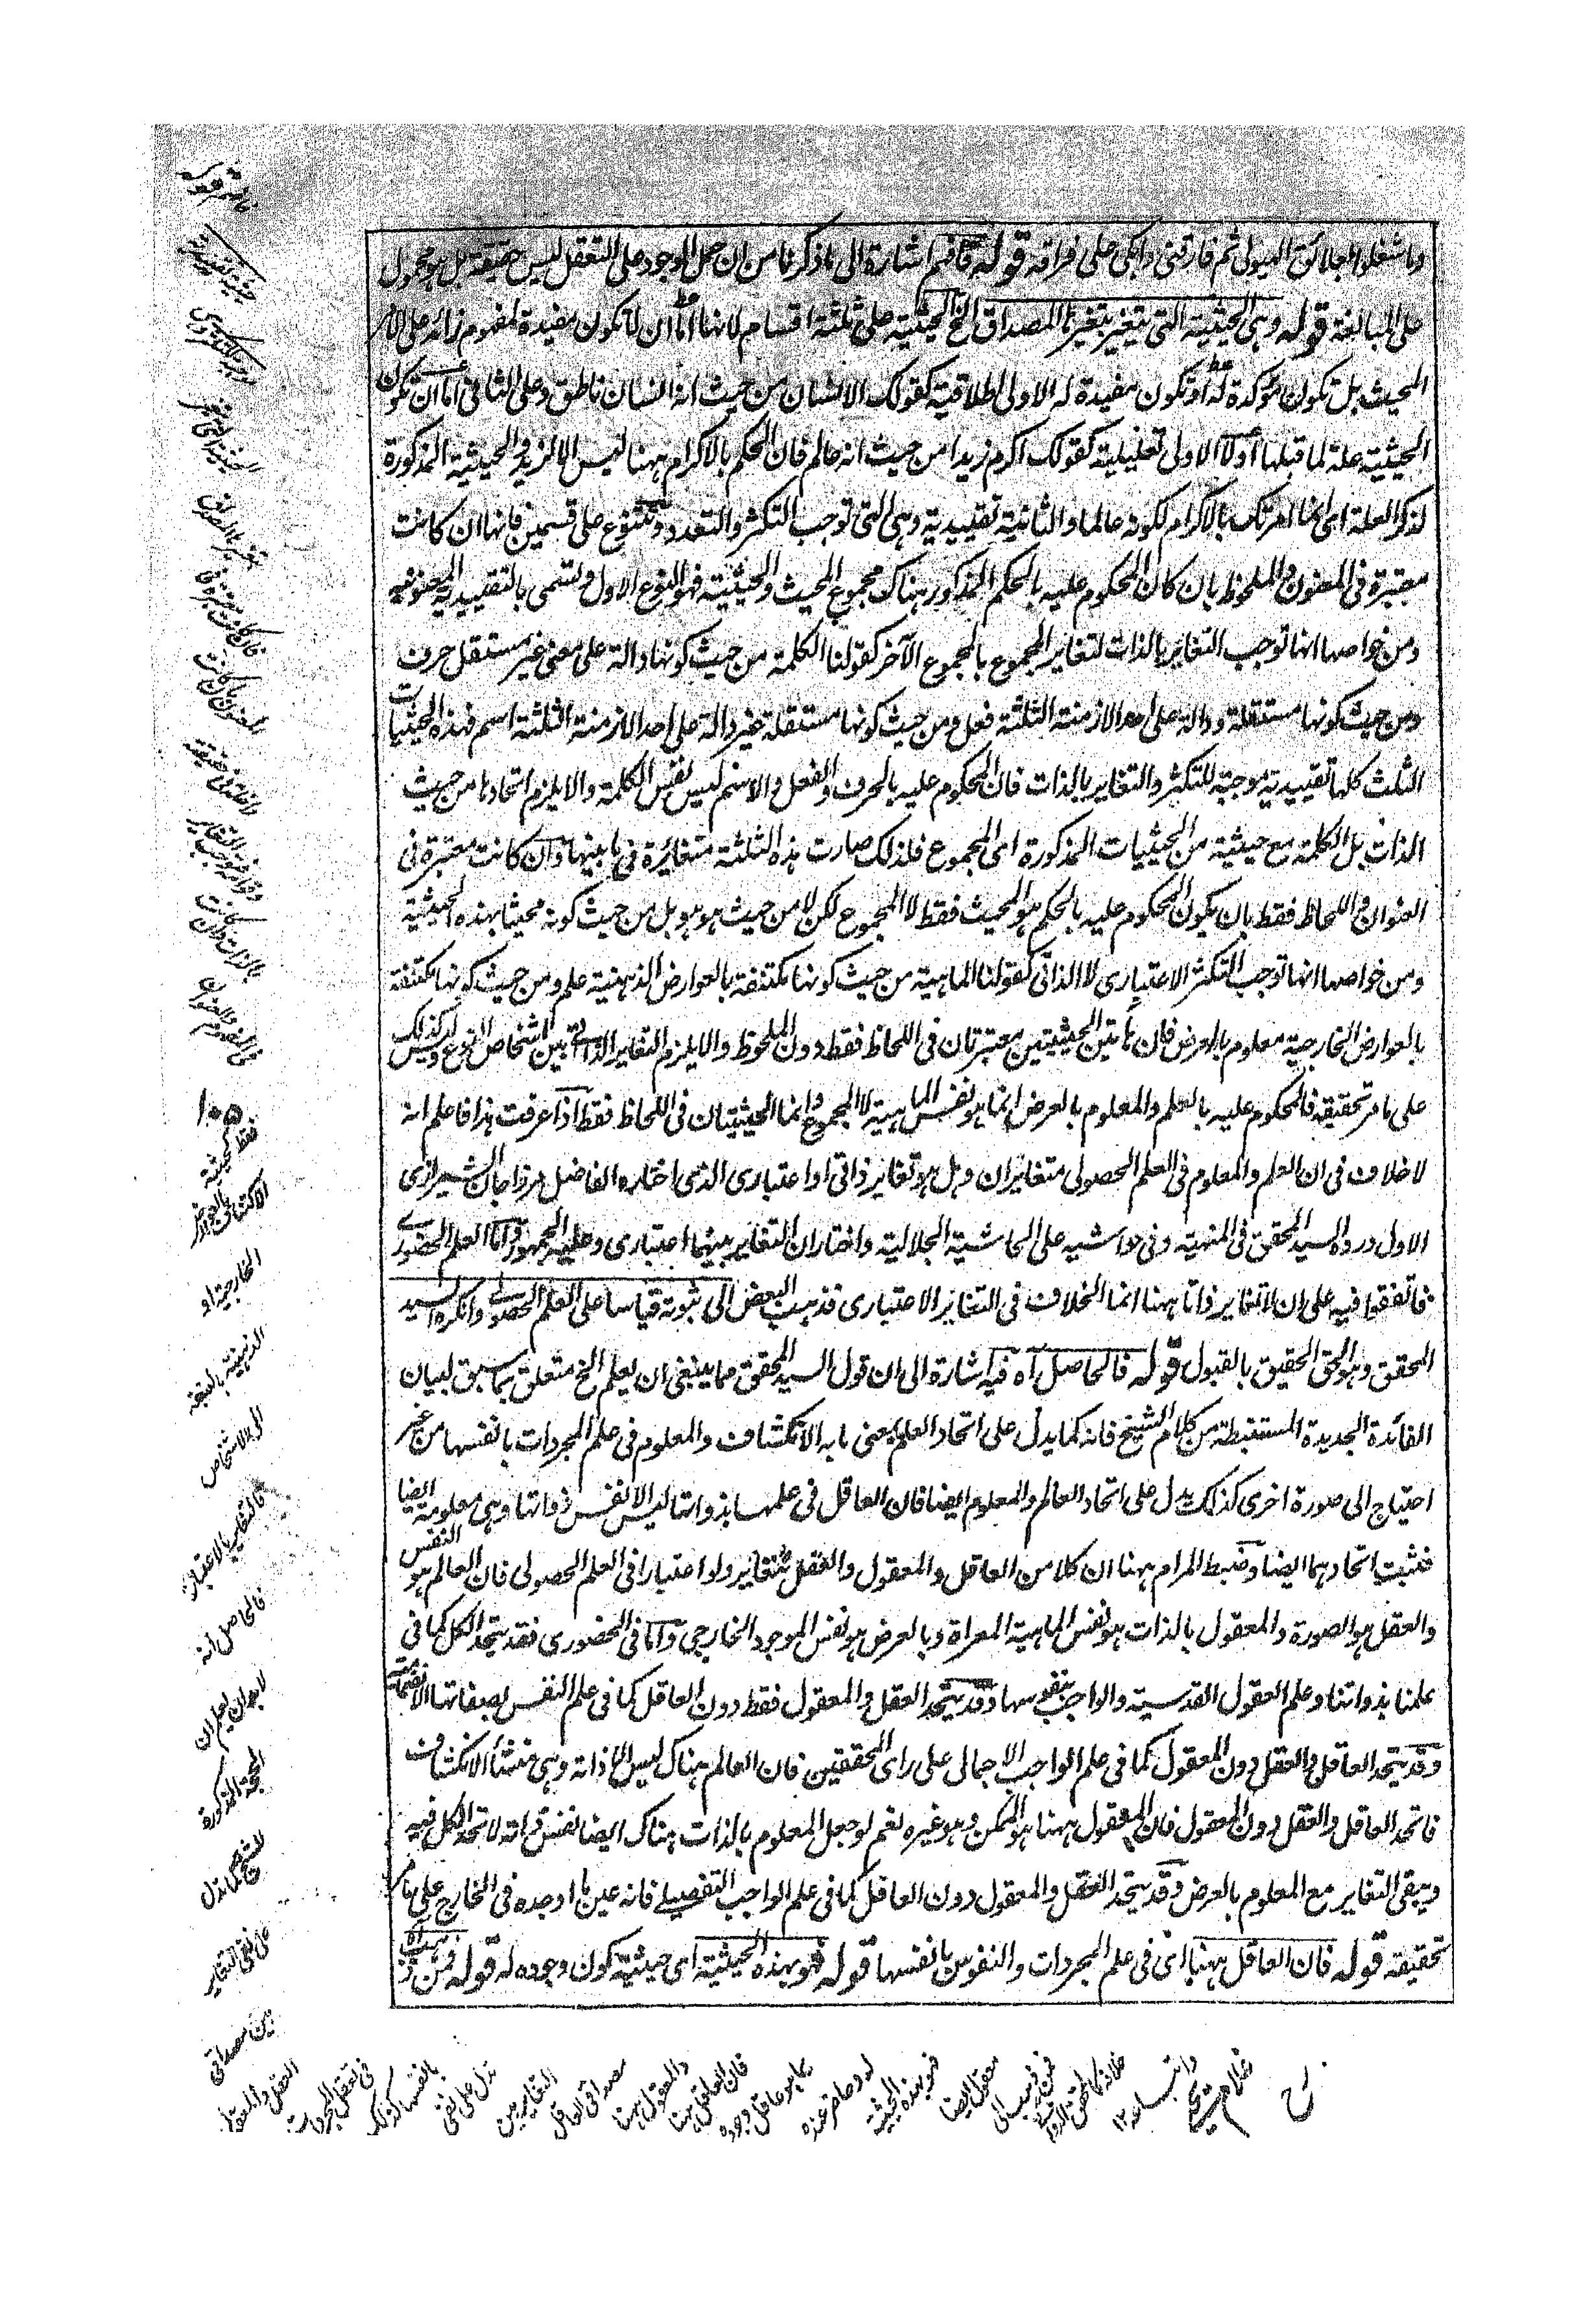 وما شغلوا بعلائق الهيولى ثم فارقنى وابكى على فراقه قوله فافهم اشارة الى ما ذكرنا من ان حمل الوجود على التعقل ليس حقيقة بل هو محمول
على المبالغة قوله وهى الحيثية التى يتغير بتغيرها المصداق الخ الحيثية على ثلثة اقسام لانها اما ان لا تكون مفيدة لمفهوم زائد على الامر
المحيث بل تكون مؤكدة له او تكون مفيدة له الاولى اطلاقية كقولك الانسان من حيث انه انسان ناطق وعلى الثانى اما ان تكون
الحيثية علة لما قبلها اولا الاولى تعليلية كقولك اكرم زيدا من حيث انه عالم فان الحكم بالاكرام ههنا ليس الا لزيد والحيثية المذكورة
لذكر العلة اى انما امرتك بالاكرام لكونه عالما والثانية تقييدية وهى التى توجب التكثر والتعدد وتتنوع على قسمين فانها ان كانت
معتبرة فى المعنون والملحوظ بان كان المحكوم عليه بالحكم المذكور هناك مجموع المحيث والحيثية فهو النوع الاول وتسمى بالتقييدية المعنونية
ومن خواصها انها توجب التغاير بالذات لتغاير المجموع بالمجموع الآخر كقولنا الكلمة من حيث كونها دالة على معنى غير مستقل حرف
ومن حيث كونها مستقلة ودالة على احد الازمنة الثلثة فعل ومن حيث كونها مستقلة غير دالة على احد الازمنة الثلثة اسم فهذه الحيثيات
الثلث كلها تقييدية موجبة للتكثر والتغاير بالذات فان المحكوم عليه بالحرف والفعل والاسم ليس نفس الكلمة والا يلزم اتحادها من حيث
الذات بل الكلمة مع حيثية من الحيثيات المذكورة اى المجموع فلذلك صارت هذه الثلثة متغائرة فى ما بينها وان كانت معتبرة فى
العنوان واللحاظ فقط بان يكون المحكوم عليه بالحكم هو المحيث فقط لا المجموع لكن لا من حيث هو هو بل من حيث كونه محيثا بهذه الحيثية
ومن خواصها انها توجب التكثر الاعتبارى لا الذاتى كقولنا الماهية من حيث كونها مكتنفة بالعوارض الذهنية علم ومن حيث كونها مكتنفة
بالعوارض الخارجية معلوم بالعرض فان هاتين الحيثيتين معتبرتان فى اللحاظ فقط دون الملحوظ والا يلزم التغاير الذاتى بين اشخاص النوع وليس كذلك
على ما مر تحقيقه فالمحكوم عليه بالعلم والمعلوم بالعرض انما هو نفس الماهية لا المجموع وانما الحيثيتان فى اللحاظ فقط اذا عرفت هذا فاعلم انه
لا خلاف فى ان العلم والمعلوم فى العلم الحصولى متغايران وهل هو تغاير ذاتى او اعتبارى الذى اختاره الفاضل مرزا جان الشيرازى
الاول ورده السيد المحقق فى المنهية وفى حواشيه على الحاشية الجلالية واختار ان التغاير بينهما اعتبارى وعليه الجمهور واما العلم الحضورى
فاتفقوا فيه على ان لا تغاير ذاتا ههنا انما الخلاف فى التغاير الاعتبارى فذهب البعض الى ثبوته قياسا على العلم الحصولى وانكره السيد
المحقق وهو الحق الحقيق بالقبول قوله فالحاصل اه فيه اشارة الى ان قول السيد المحقق مما ينبغى ان يعلم الخ متعلق بما سبق لبيان
الفائدة الجديدة المستنبطة من كلام الشيخ فانه كما يدل على اتحاد العلم بمعنى ما به الانكشاف والمعلوم فى علم المجردات بانفسها من غير
احتياج الى صورة اخرى كذلك يدل على اتحاد العالم والمعلوم ايضا فان العاقل فى علمها بذواتها ليس الا نفس ذواتها وهى معلومة ايضا
فثبت اتحادهما ايضا وضبط المرام ههنا ان كلا من العاقل والمعقول والعقل متغاير ولو اعتبارا فى العلم الحصولى فان العالم هو النفس
والعقل هو الصورة والمعقول بالذات هو نفس الماهية المعراة وبالعرض هو نفس الموجود الخارجى واما فى الحضورى فقد يتحد الكل كما فى
علمنا بذواتنا وعلم العقول القدسية والواجب بنفوسها وقد يتحد العقل والمعقول فقط دون العاقل كما فى علم النفس بصفاتها الانضمامية
وقد يتحد العاقل والعقل دون المعقول كما فى علم الواجب الاجمالى على راى المحققين فان العالم هناك ليس الا ذاته وهى منشأ الانكشاف
فاتحد العاقل والعقل دون المعقول فان المعقول ههنا هو الممكن وهو غيره نعم لو جعل المعلوم بالذات هناك ايضا نفس ذاته لاتحد الكل فيه
ويبقى التغاير مع المعلوم بالعرض وقد يتحد العقل والمعقول دون العاقل كما فى علم الواجب التفصيلى فانه عين ما اوجده فى الخارج على ما مر
تحقيقه قوله فان العاقل ههنا اى فى علم المجردات والنفوس بانفسها قوله فهو بهذه الحيثية اى حيثية كون وجوده له قوله فمن ذهب اه
فقط كحيثية
الاكتناف بالعوارض
الخارجية او
الذهنية بالنسبة
الى الاشخاص
فالتغاير بالاعتبار
فالحاصل انه
لا بد ان يعلم ان
الحجة المذكورة
للشيخ كما تدل
على نفى التغاير
بين مصداقى
العقل والمعقول
فى تعقل المجردات
بانفسها كذلك
تدل على نفى
التغاير بين
مصداقى العاقل
والمعقول ههنا
فان العاقل ههنا
كما هو عاقل وجوده
له وحاضر عنده
فهو بهذه الحيثية
معقول ايضا
فمن ذهب الى
خلافه كالمحقق الدوانى